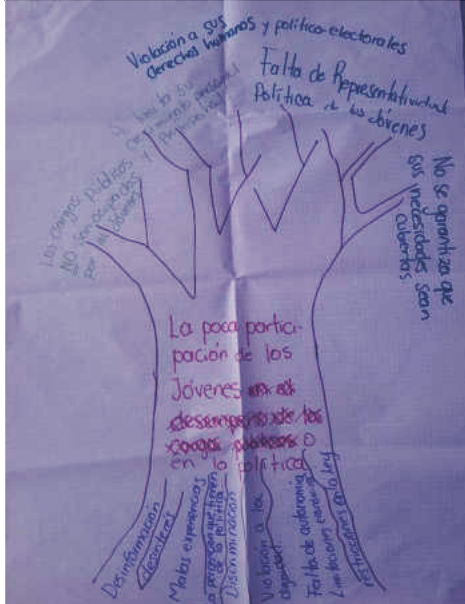 Violación a sus
derechos humanos y político-electorales
Falta de Representatividad
Política de los Jóvenes
No se garantiza que
sus necesidades sean
cubiertas
y limita su
crecimiento personal
y
Los cargos públicos
NO son ocupados
por los Jóvenes
La poca partici-
pación de los
Jóvenes en el
desempeño de los
cargos públicos o
en la política
Desinformación
desinterés
Malas experiencias
la percepción que tienen
de la política
Discriminación
Violación a la
dignidad
Falta de autonomía
Limitaciones
restricciones en la ley